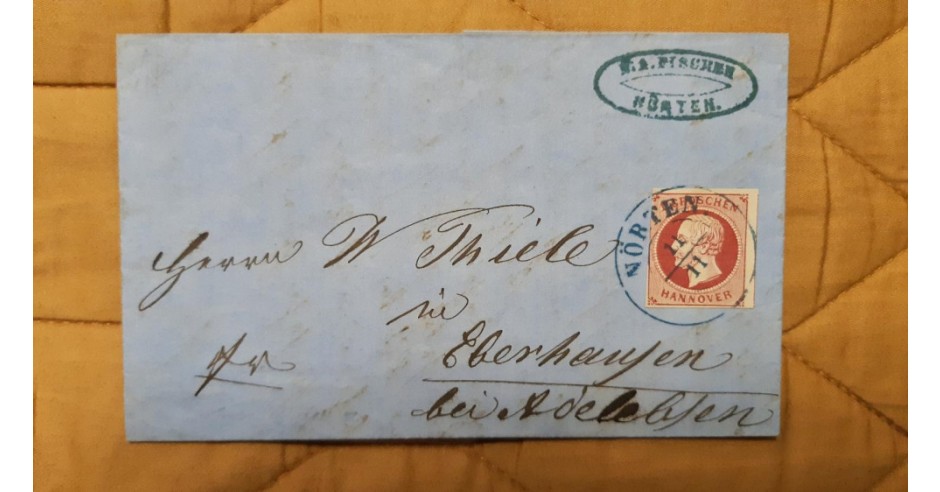 FISCHER
NÖRTEN.
NÖRTEN.
11
11
GROSCHEN
HANNOVER
Herrn W Thiele
in
Eberhausen
bei Adelebsen
fr